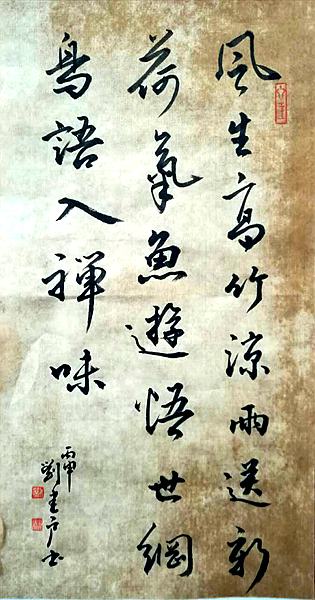 風生高竹涼雨送新
荷氣魚遊悟世網
鳥語入禪味
丙申
劉
書